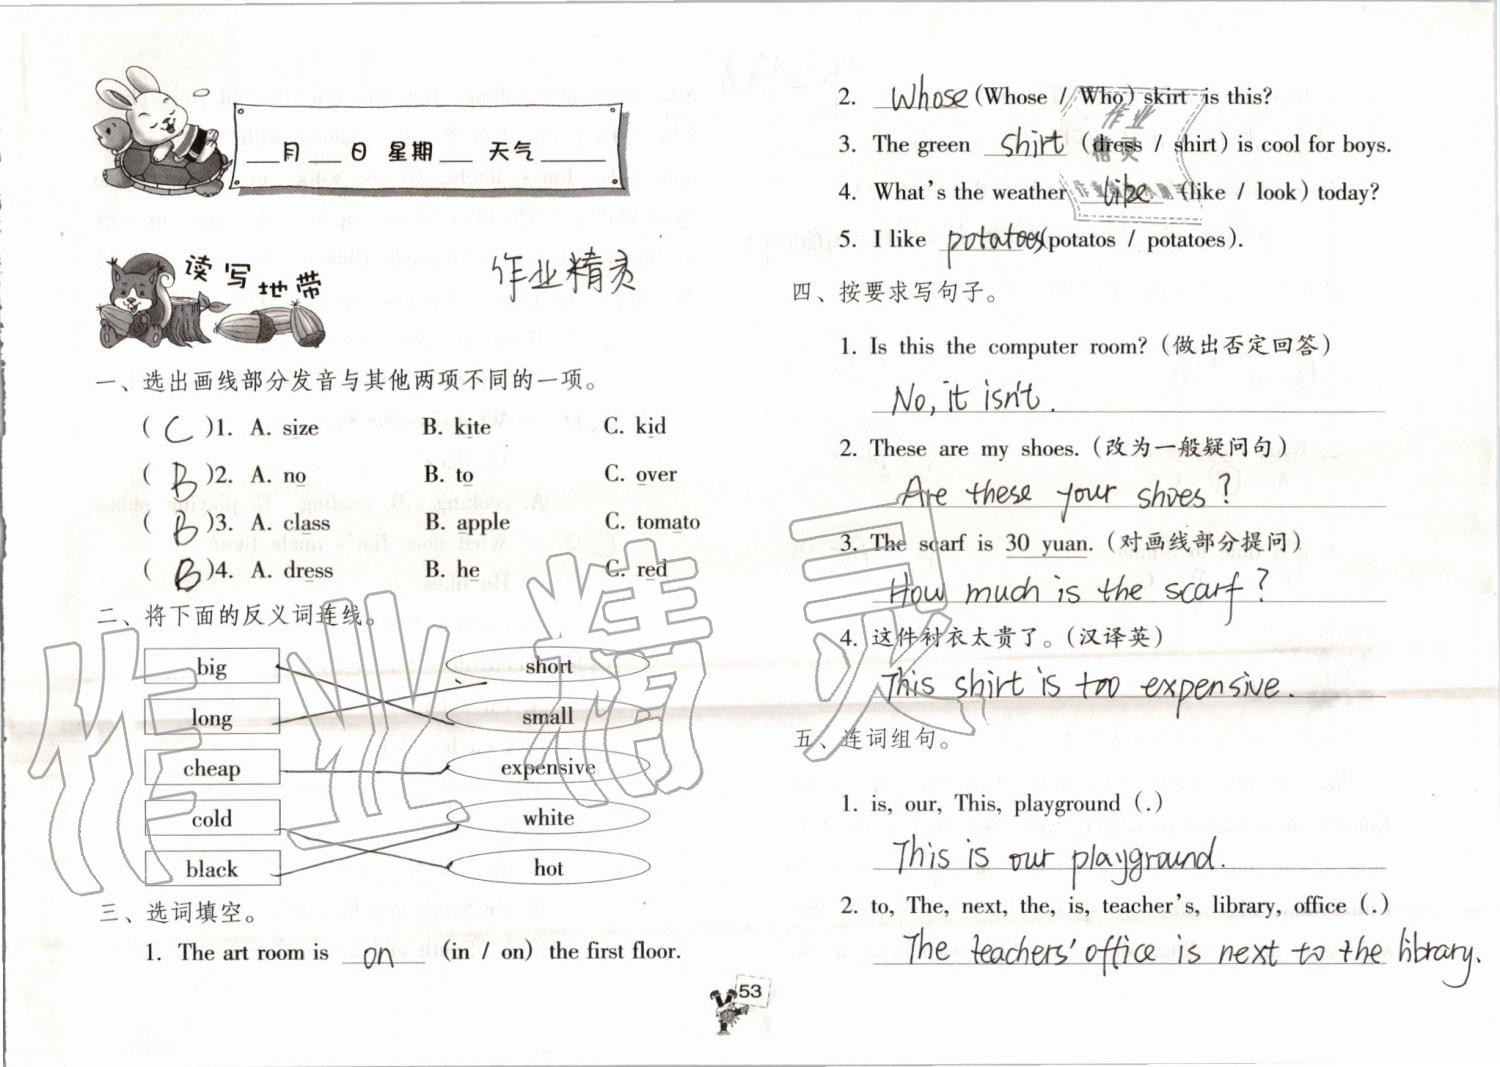 ___月___日 星期___ 天气_____
读写地带
作业精灵
一、选出画线部分发音与其他两项不同的一项。
( C )1. A. size B. kite C. kid
( B )2. A. no B. to C. over
( B )3. A. class B. apple C. tomato
( B )4. A. dress B. he C. red
二、将下面的反义词连线。
big short
long small
cheap expensive
cold white
black hot
三、选词填空。
1. The art room is on (in / on) the first floor.
2. Whose (Whose / Who) skirt is this?
3. The green shirt (dress / shirt) is cool for boys.
4. What's the weather like (like / look) today?
5. I like potatoes (potatos / potatoes).
四、按要求写句子。
1. Is this the computer room? (做出否定回答)
No, it isn't.
2. These are my shoes. (改为一般疑问句)
Are these your shoes?
3. The scarf is 30 yuan. (对画线部分提问)
How much is the scarf?
4. 这件衬衣太贵了。(汉译英)
This shirt is too expensive.
五、连词组句。
1. is, our, This, playground (.)
This is our playground.
2. to, The, next, the, is, teacher's, library, office (.)
The teachers' office is next to the library.
53
作业精灵
作业
精灵